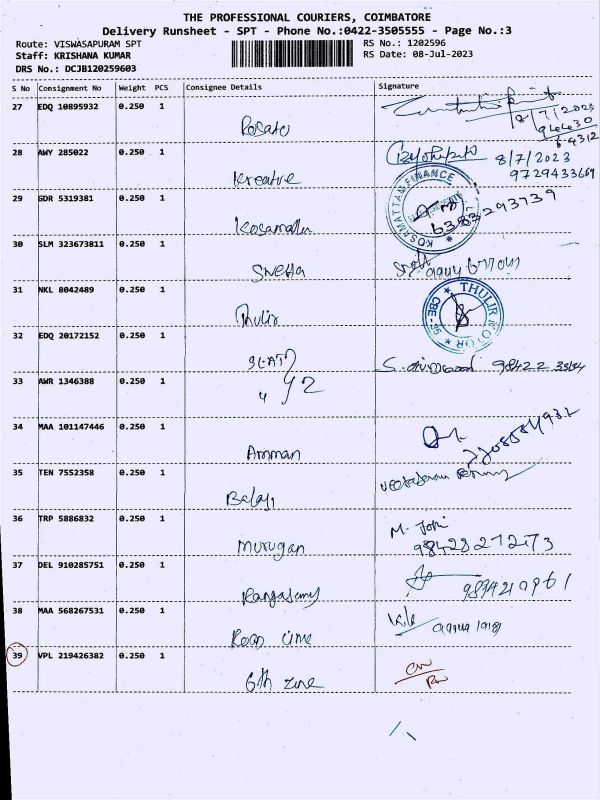 THE PROFESSIONAL COURIERS, COIMBATORE
Delivery Runsheet - SPT - Phone No.:0422-3505555 - Page No.:3
Route: VISWASAPURAM SPT
RS No.: 1202596
Staff: KRISHANA KUMAR
RS Date: 08-Jul-2023
DRS No.: DCJB120259603
S No Consignment No Weight PCS Consignee Details Signature
27 EDQ 10895932 0.250 1
8/7/2023
28 AWY 285022 0.250 1
Kreative
8/7/2023
9729433669
29 GDR 5319381 0.250 1
Kosamattam
KOSAMATTAM FINANCE
6383293739
30 SLM 323673811 0.250 1
Sneha
31 NKL 8042489 0.250 1
Thulir
THULIR MOTOR
CBE-35
32 EDQ 20172152 0.250 1
33 AWR 1346388 0.250 1
34 MAA 101147446 0.250 1
Amman
35 TEN 7552358 0.250 1
Balaji
36 TRP 5886832 0.250 1
Murugan
M. Joni
9842827273
37 DEL 910285751 0.250 1
Rangasamy
38 MAA 568267531 0.250 1
39 VPL 219426382 0.250 1
6th zone